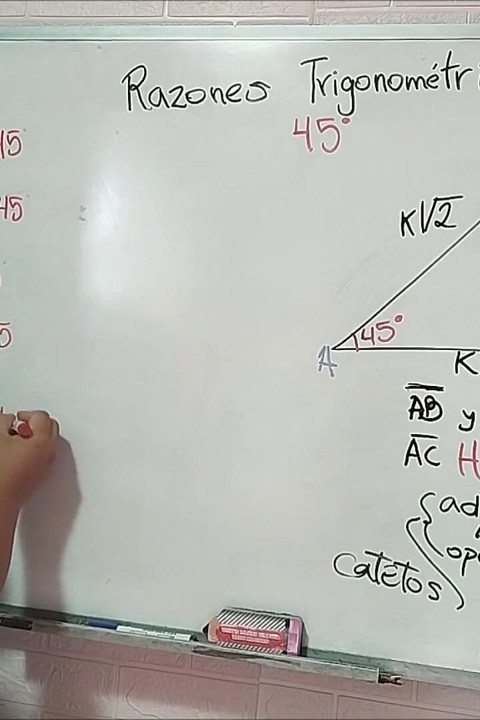 Razones Trigonométri
45°
45
45
5
K√2
45°
A
K
AB y
AC H
ad
opo
catetos